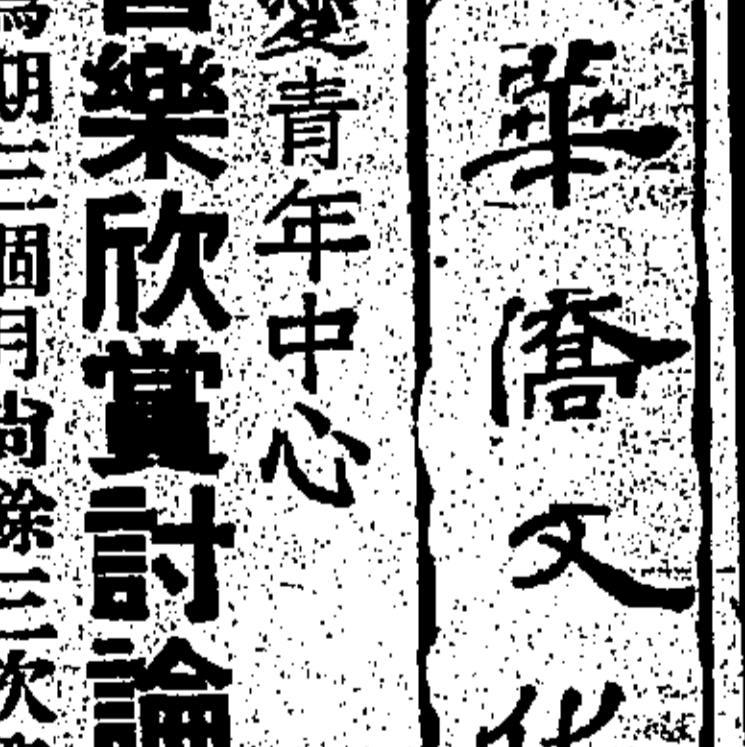 華僑文化
愛青年中心
音樂欣賞討論
為期三個月尚餘三次